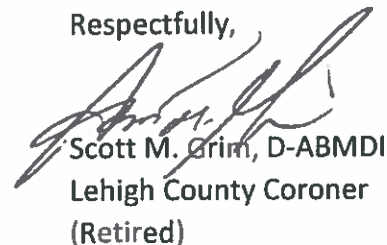 Respectfully,
Scott M. Grim, D-ABMDI
Lehigh County Coroner
(Retired)